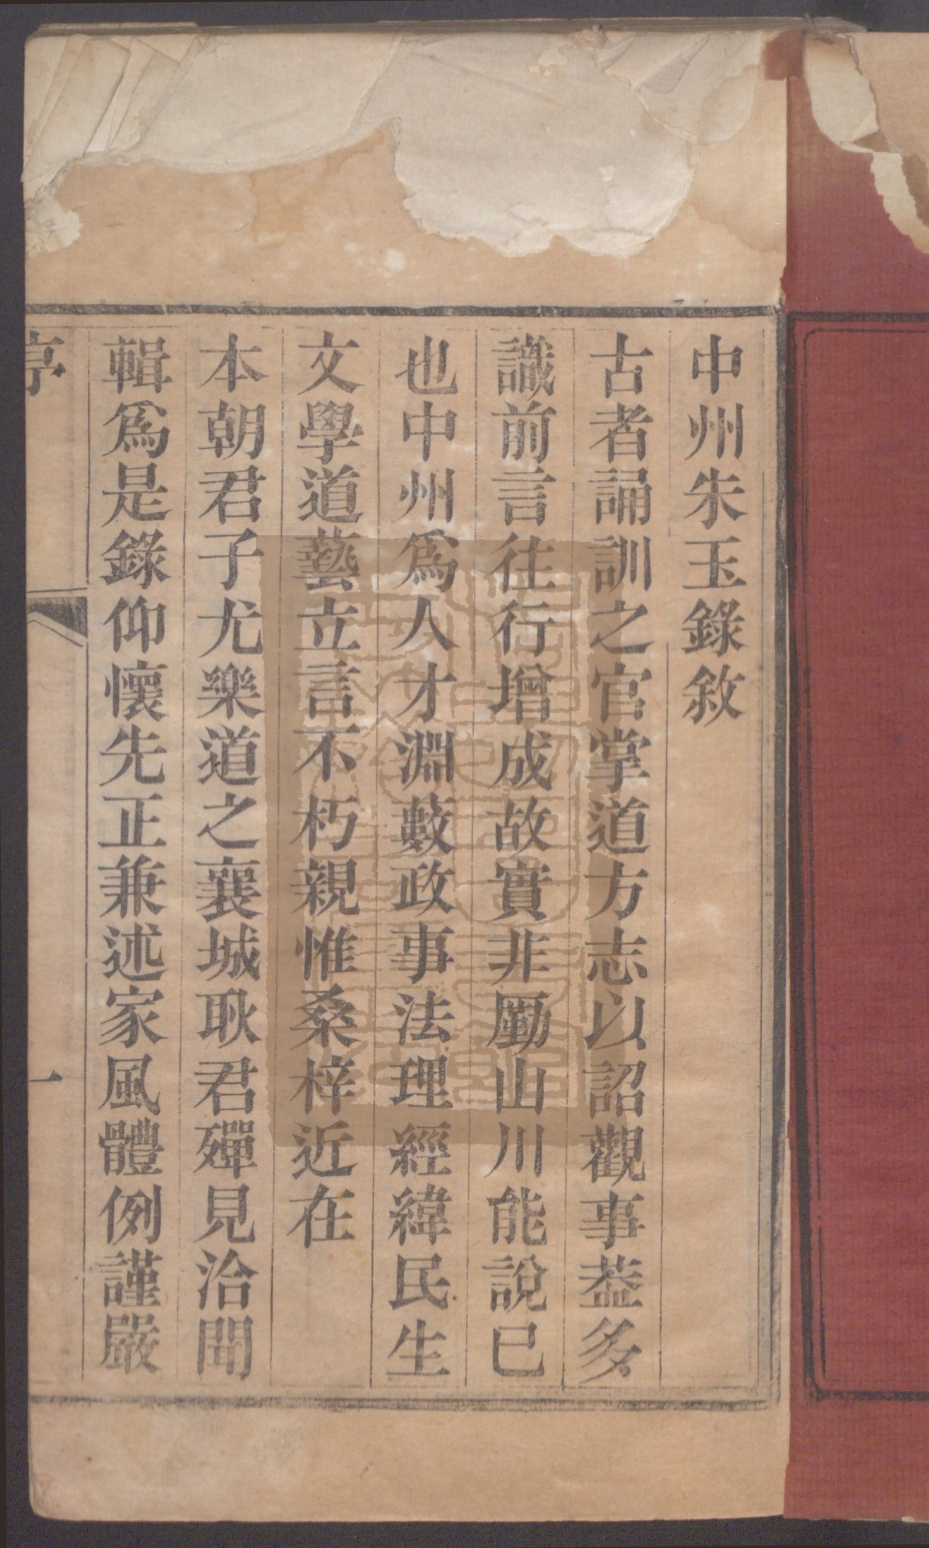 中州朱玉錄敘
古者誦訓之官掌道方志以詔觀事葢多
識前言往行增成故實非勵山川能說已
也中州爲人才淵藪政事法理經緯民生
文學道藝立言不朽親惟桑梓近在
本朝君子尤樂道之襄城耿君殫見洽聞
輯爲是錄仰懷先正兼述家風體例謹嚴
序
一